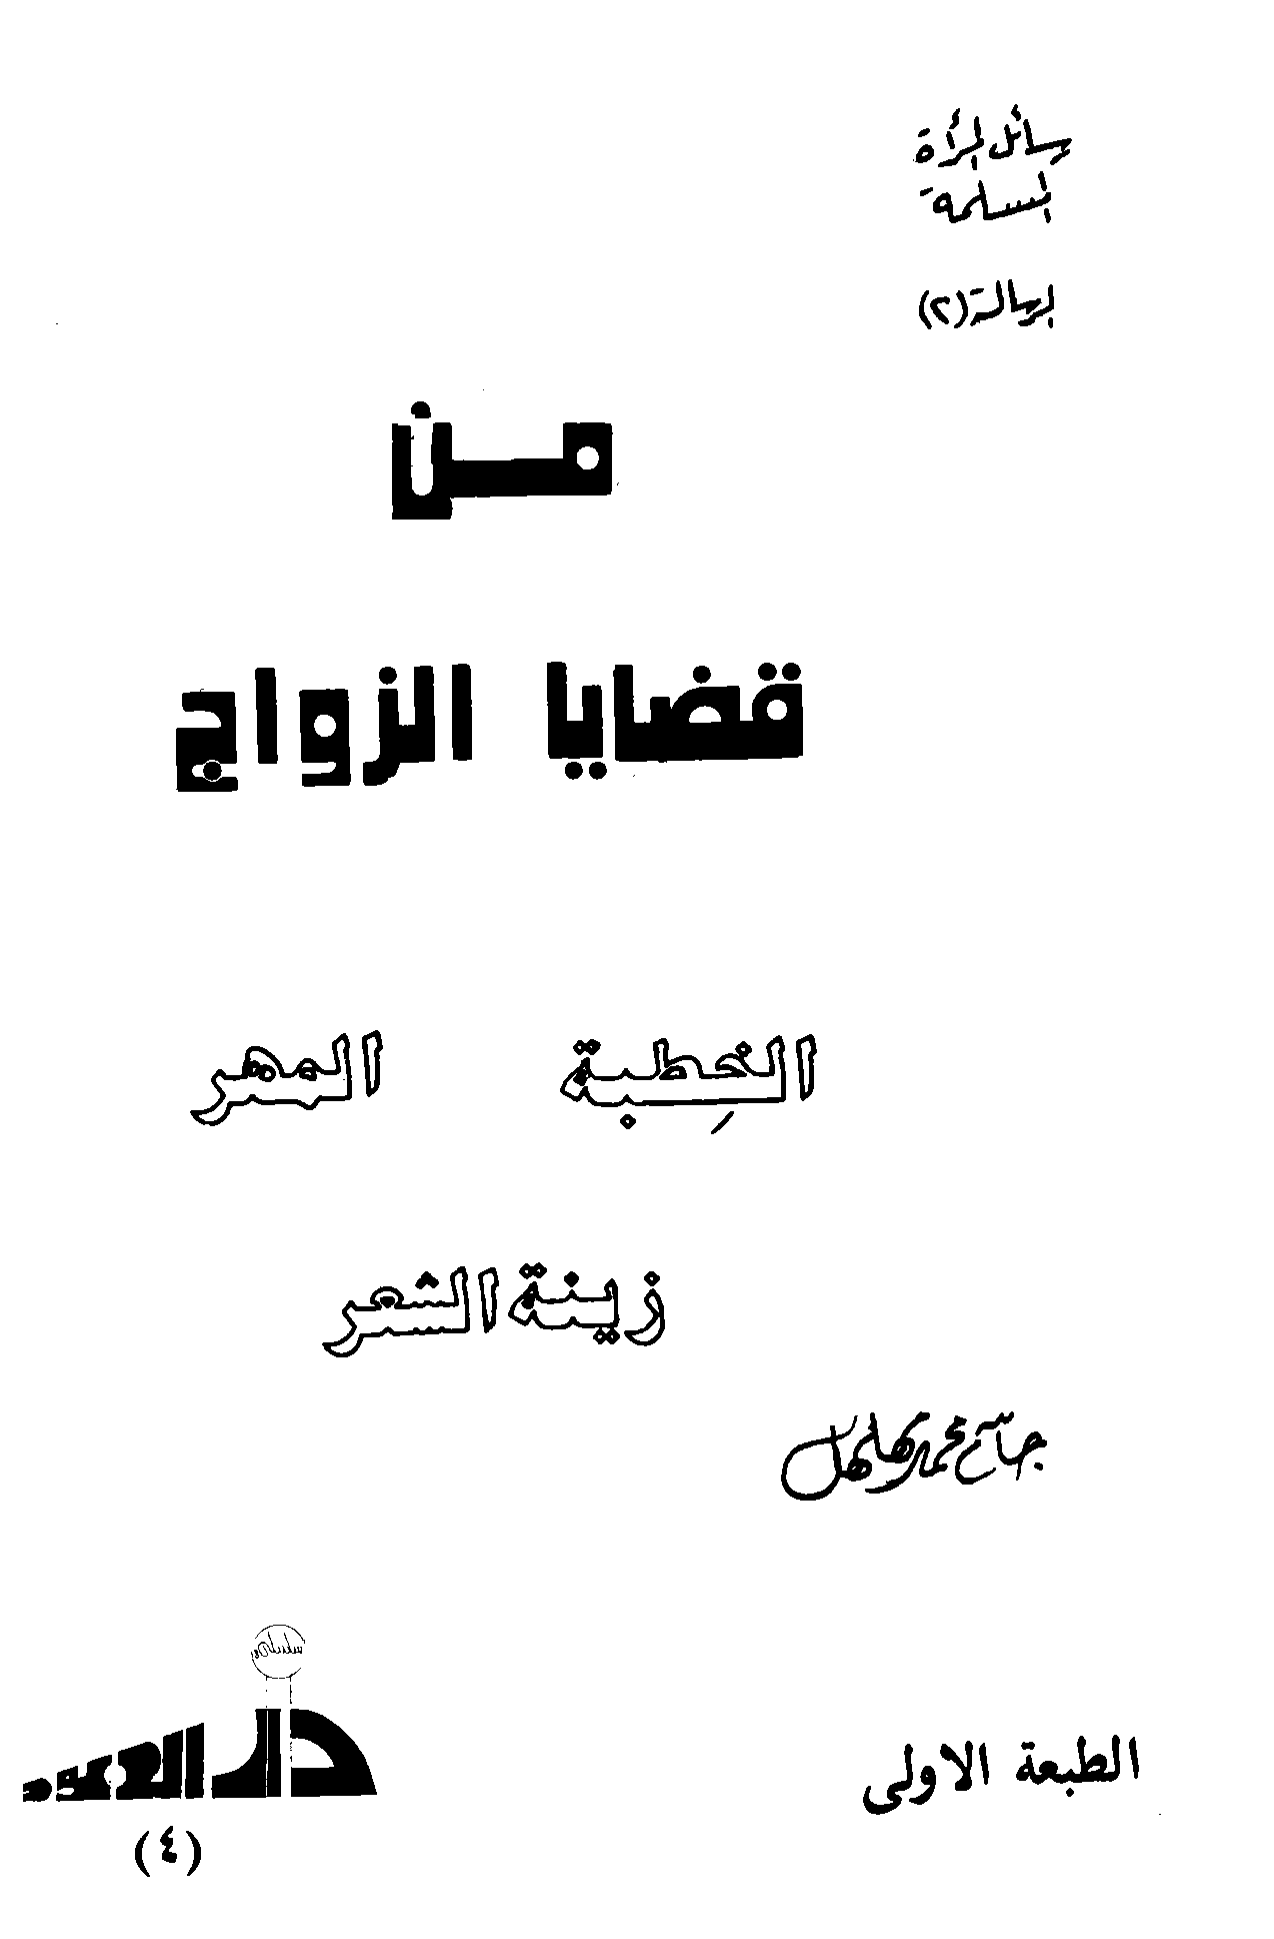 رسائل المرأة
المسلمة
رسالة (٢)
من
قضايا الزواج
الخِطبة المهر
زينة الشعر
جاسم محمد مهلهل
الطبعة الاولى
دار الدعوة
(٤)